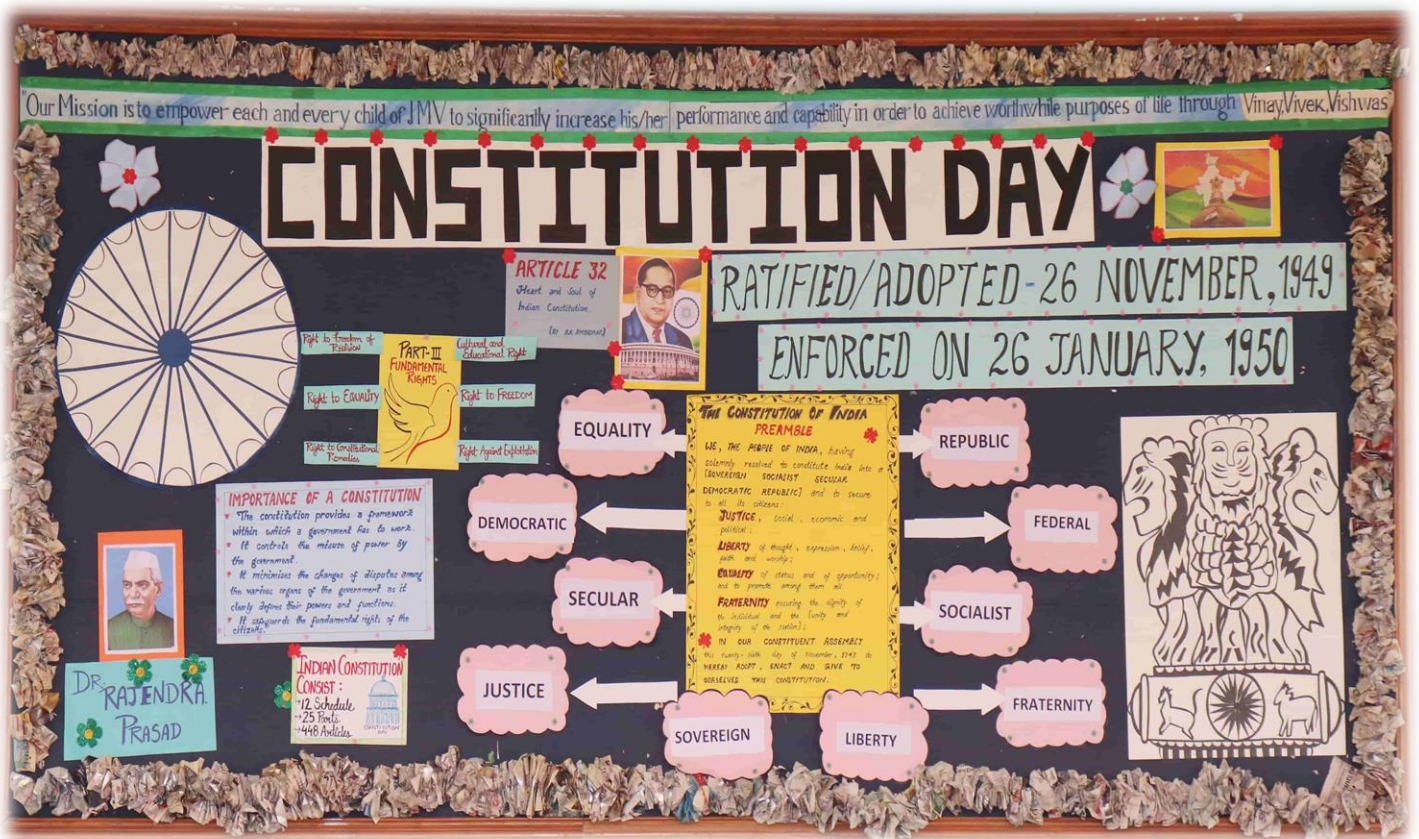 "Our Mission is to empower each and every child of JMV to significantly increase his/her performance and capability in order to achieve worthwhile purposes of life through Vinay,Vivek,Vishwas
CONSTITUTION DAY
ARTICLE 32
Heart and Soul of
Indian Constitution.
(BY BR AMBEDKAR)
RATIFIED/ADOPTED - 26 NOVEMBER, 1949
ENFORCED ON 26 JANUARY, 1950
PART-III
FUNDAMENTAL
RIGHTS
Right to freedom of
Religion
Cultural and
Educational Right
Right to EQUALITY
Right to FREEDOM
Right to Constitutional
Remedies
Right Against Exploitation
IMPORTANCE OF A CONSTITUTION
The constitution provides a framework
within which a government has to work.
It controls the misuse of power by
the government.
It minimises the changes of disputes among
the various organs of the government as it
clearly defines their powers and functions.
It safguards the fundamental rights of the
citizens.
DR. RAJENDRA
PRASAD
INDIAN CONSTITUTION
CONSIST :
12 Schedule
25 Parts
448 Articles
CONSTITUTION
DAY
EQUALITY
DEMOCRATIC
SECULAR
JUSTICE
SOVEREIGN
THE CONSTITUTION OF INDIA
PREAMBLE
WE, THE PEOPLE OF INDIA, having
solemnly resolved to constitute India into a
[SOVEREIGN SOCIALIST SECULAR
DEMOCRATIC REPUBLIC] and to secure
to all its citizens:
JUSTICE, social, economic and
political;
LIBERTY of thought, expression, belief,
faith and worship;
EQUALITY of status and of opportunity;
and to promote among them all
FRATERNITY assuring the dignity of
the individual and the [unity and
integrity of the nation];
IN OUR CONSTITUENT ASSEMBLY
this twenty-sixth day of November, 1949 do
HEREBY ADOPT, ENACT AND GIVE TO
OURSELVES THIS CONSTITUTION.
REPUBLIC
FEDERAL
SOCIALIST
FRATERNITY
LIBERTY